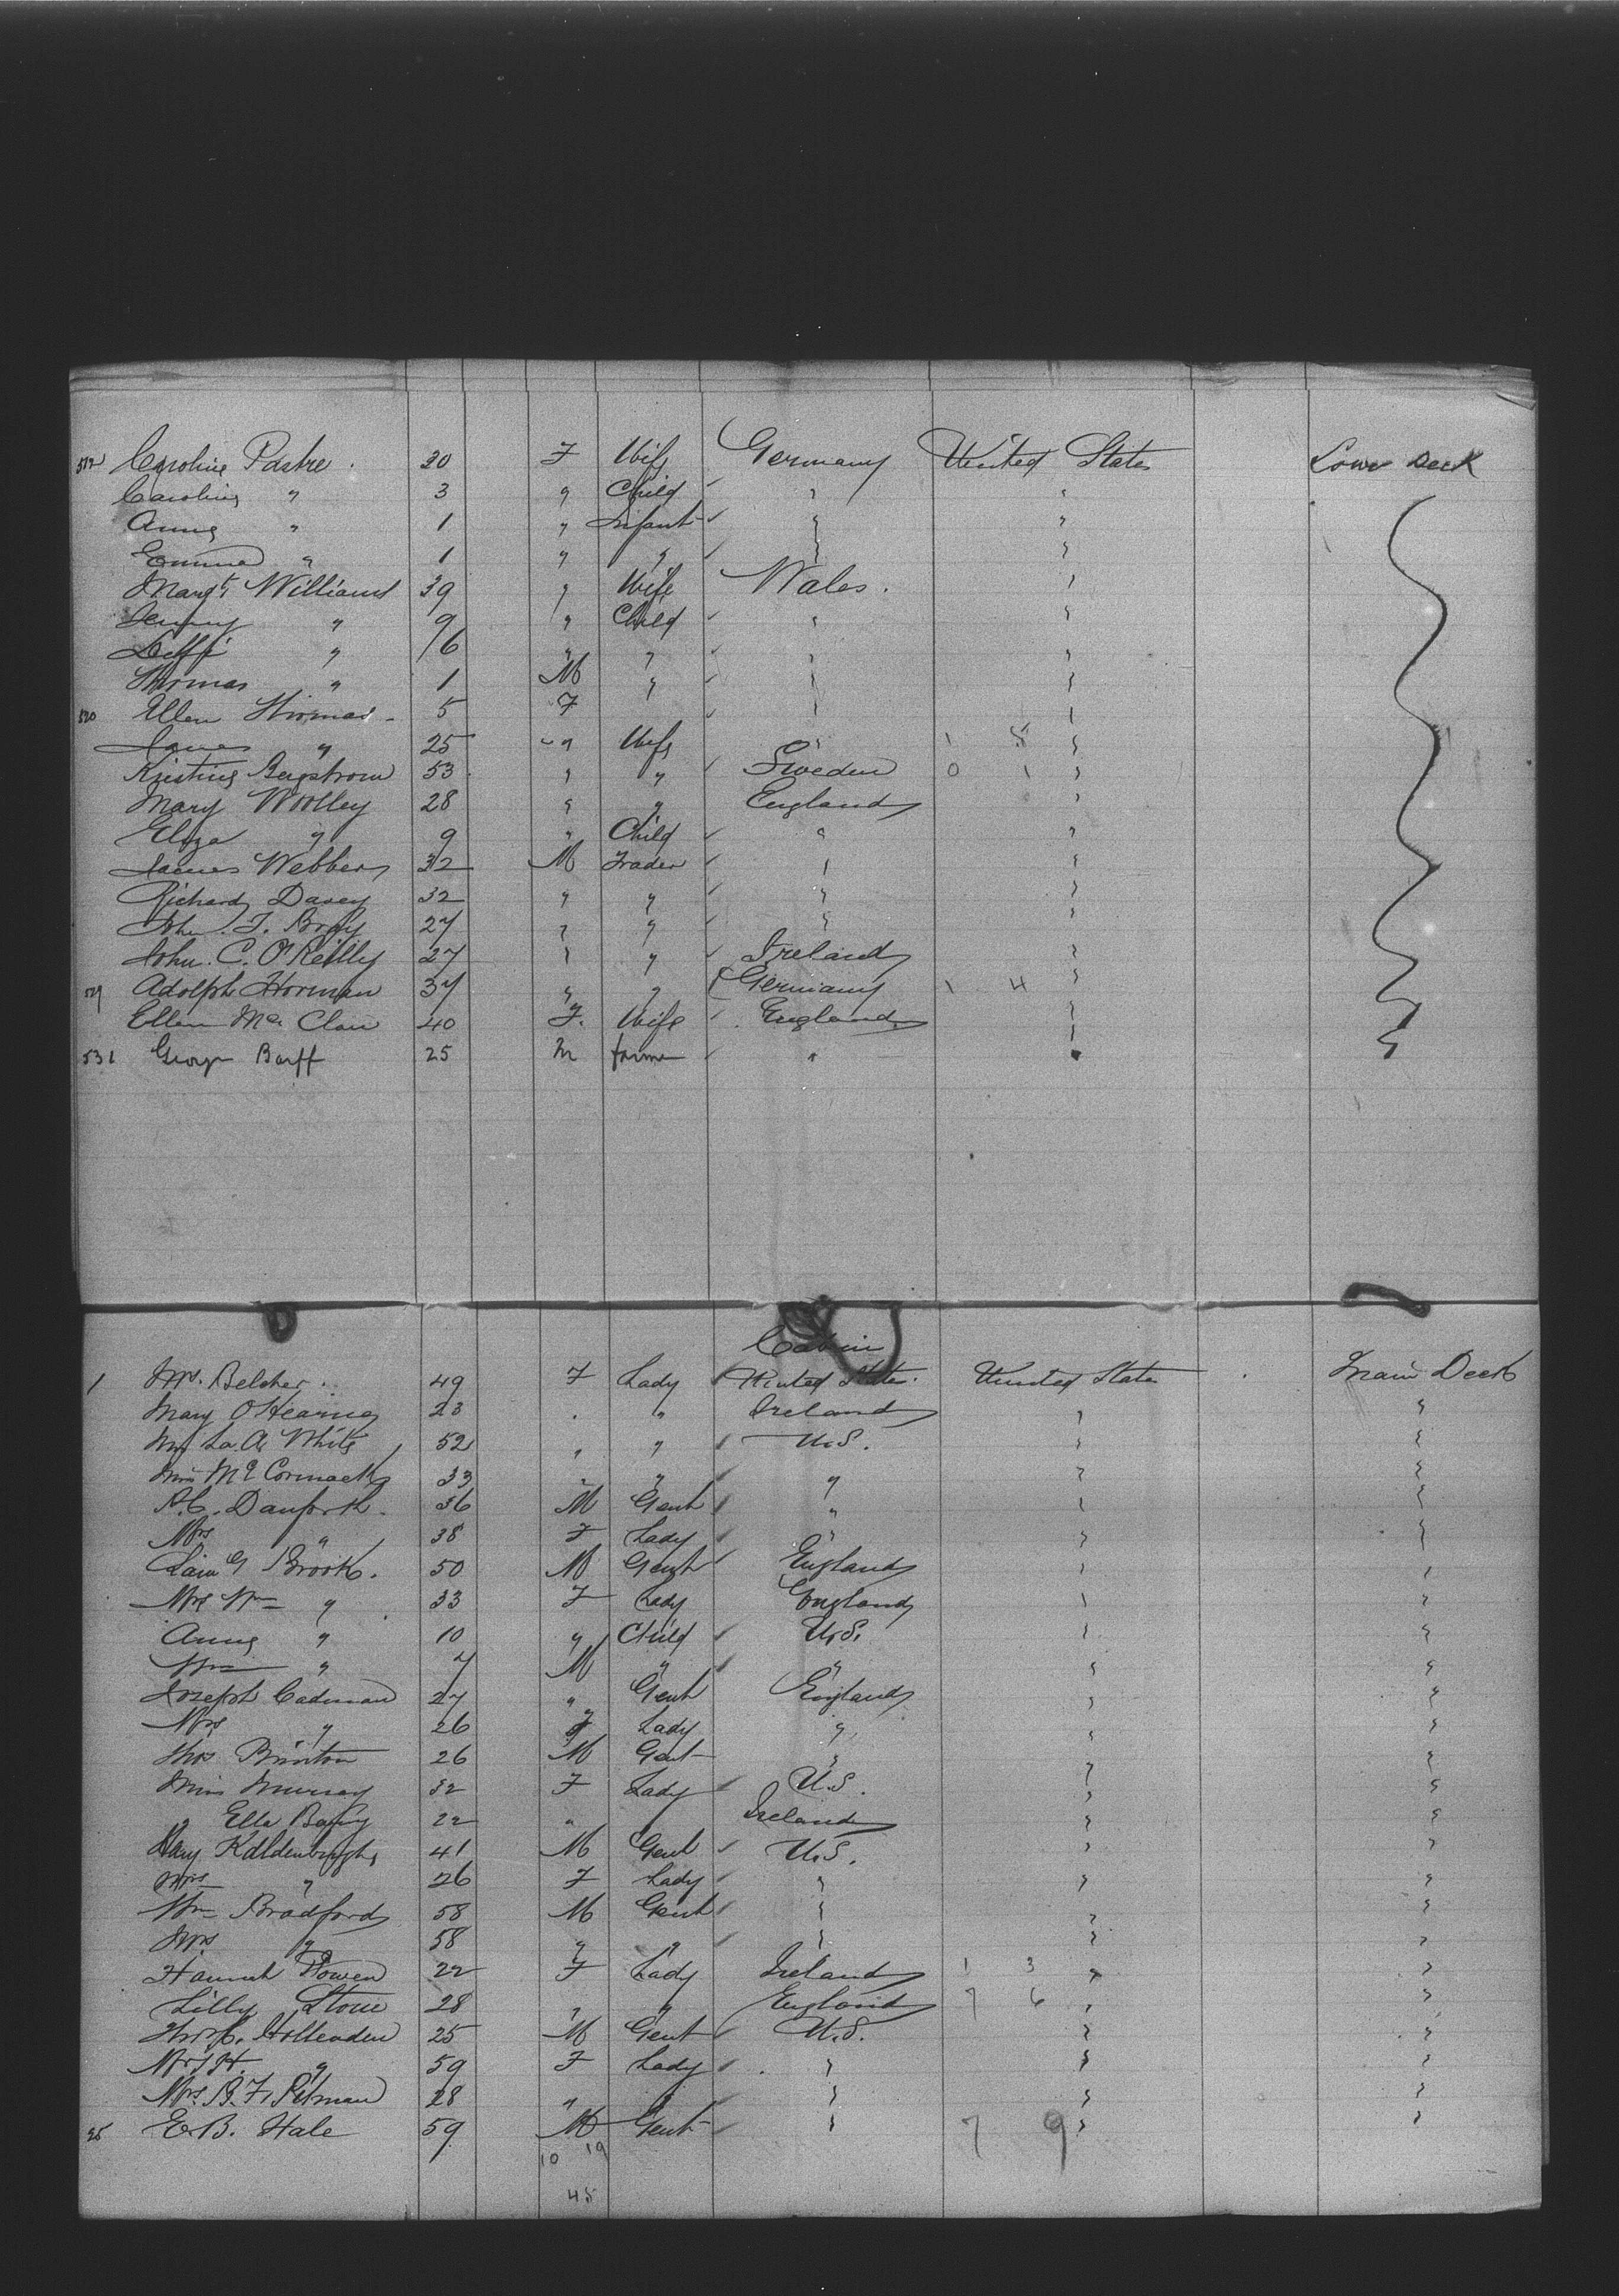 512 Caroline Pastre . 30 F Wife Germany United States Lower Deck
Caroline " 3 " Child " "
Anna " 1 " Infant " "
Emma " 1 " " " "
Margt Williams 39 " Wife Wales . "
Jenny " 9 " Child " "
" 6 " " " "
Thomas " 1 M " " "
520 Ellen Thomas - 5 F " "
" 25 " Wife " 1 5 "
Kristina Bergstrom 53 " " Sweden 0 1 "
Mary Woolley 28 " " England "
Eliza " 9 " Child " "
James Webber 32 M Trader " "
Richard Davey 32 " " " "
John . T. 27 " " " "
John . C. O'Reilly 27 " " Ireland "
529 Adolph Horman 37 " " Germany 1 4 "
Ellen Mc Clau 40 F. Wife England "
531 George Barff 25 M farmer " "
Cabin
1 Mrs. Belcher . 49 F Lady United States . United States Main Deck
Mary O'Hearne 23 " " Ireland " "
La. A. White 52 " " U.S. " "
Miss McCormack 33 " " " " "
A.C. Danforth . 36 M Gent " " "
Mrs " 38 F Lady " " "
G Brook . 50 M Gent England " "
Mrs Wm " 33 F Lady England " "
Anna " 10 " Child U.S. " "
Wm " 7 M " " " "
Joseph Cadman 27 " Gent England " "
Mrs " 26 F Lady " " "
Thos Brinton 26 M Gent " " "
Miss Murray 32 F Lady U.S. " "
" Ella 22 " " Ireland " "
Kaldenburgh 41 M Gent U.S. " "
Mrs " 26 F Lady " " "
Wm Bradford 58 M Gent " " "
Mrs. " 58 " " " " "
Hannah Power 22 F Lady Ireland 1 3 " "
Lilly Stone 28 " " England 7 6 " "
Hollenden 25 M Gent U.S. " "
Mrs H. " 59 F Lady " " "
Mrs. B. F. Pitman 28 " " " " "
25 E. B. Hale 59 M Gent " 7 9 " "
10 19
45